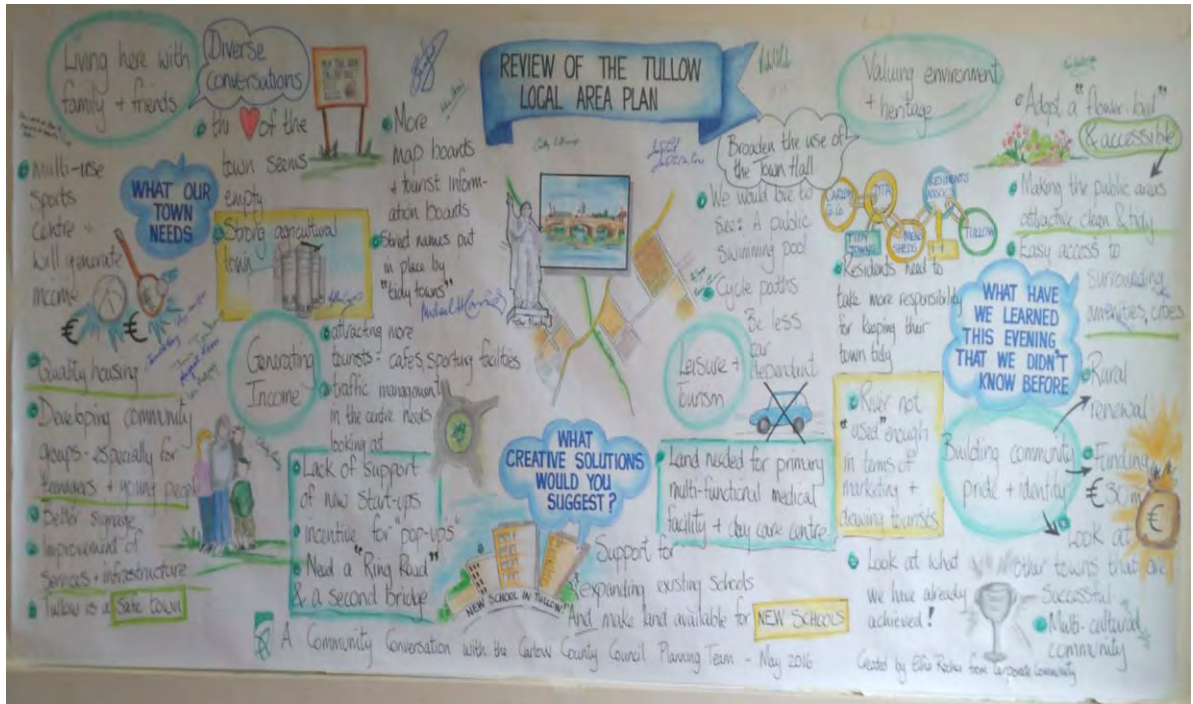 REVIEW OF THE TULLOW
LOCAL AREA PLAN
Living here with
family + friends
Diverse
conversations
the of the
town seems
empty
Multi-use
sports
centre -
will generate
income
€ €
WHAT OUR
TOWN
NEEDS
Strong agricultural
town
Quality housing
Developing community
groups - especially for
teenagers + young people
Better signage
Improvement of
services + infrastructure
Tullow is a safe town
More
map boards
+ tourist inform-
ation boards
Street names put
in place by
"tidy towns"
Generating
Income
attracting more
tourists - cafes, sporting facilities
traffic management
in the centre needs
looking at
Lack of support
of new start-ups
incentive for "pop-ups"
Need a "Ring Road"
& a second bridge
WHAT
CREATIVE SOLUTIONS
WOULD YOU
SUGGEST?
NEW SCHOOL IN TULLOW?
Support for
expanding existing schools
And make land available for NEW SCHOOLS
Broaden the use of
the Town Hall
We would love to
see: A public
swimming pool
Cycle paths
Be less
car
dependent
Leisure +
Tourism
Land needed for primary
multi-functional medical
facility + day care centre
Valuing environment
+ heritage
Adopt a "flower-bed"
& accessible
Making the public areas
attractive clean & tidy
Easy access to
surrounding
amenities, cities
RESIDENTS
TIDY
TOWNS
MENS
SHEDS
TULLOW
Residents need to
take more responsibility
for keeping their
town tidy
River not
"used" enough
in terms of
marketing +
drawing tourists
WHAT HAVE
WE LEARNED
THIS EVENING
THAT WE DIDN'T
KNOW BEFORE
Building community
pride + identity
Rural
renewal
Funding
€30m
€
Look at
other towns that are
successful
Multi-cultural
community
Look at what
we have already
achieved!
A Community Conversation with the Carlow County Council Planning Team - May 2016
Created by from Corporate Community